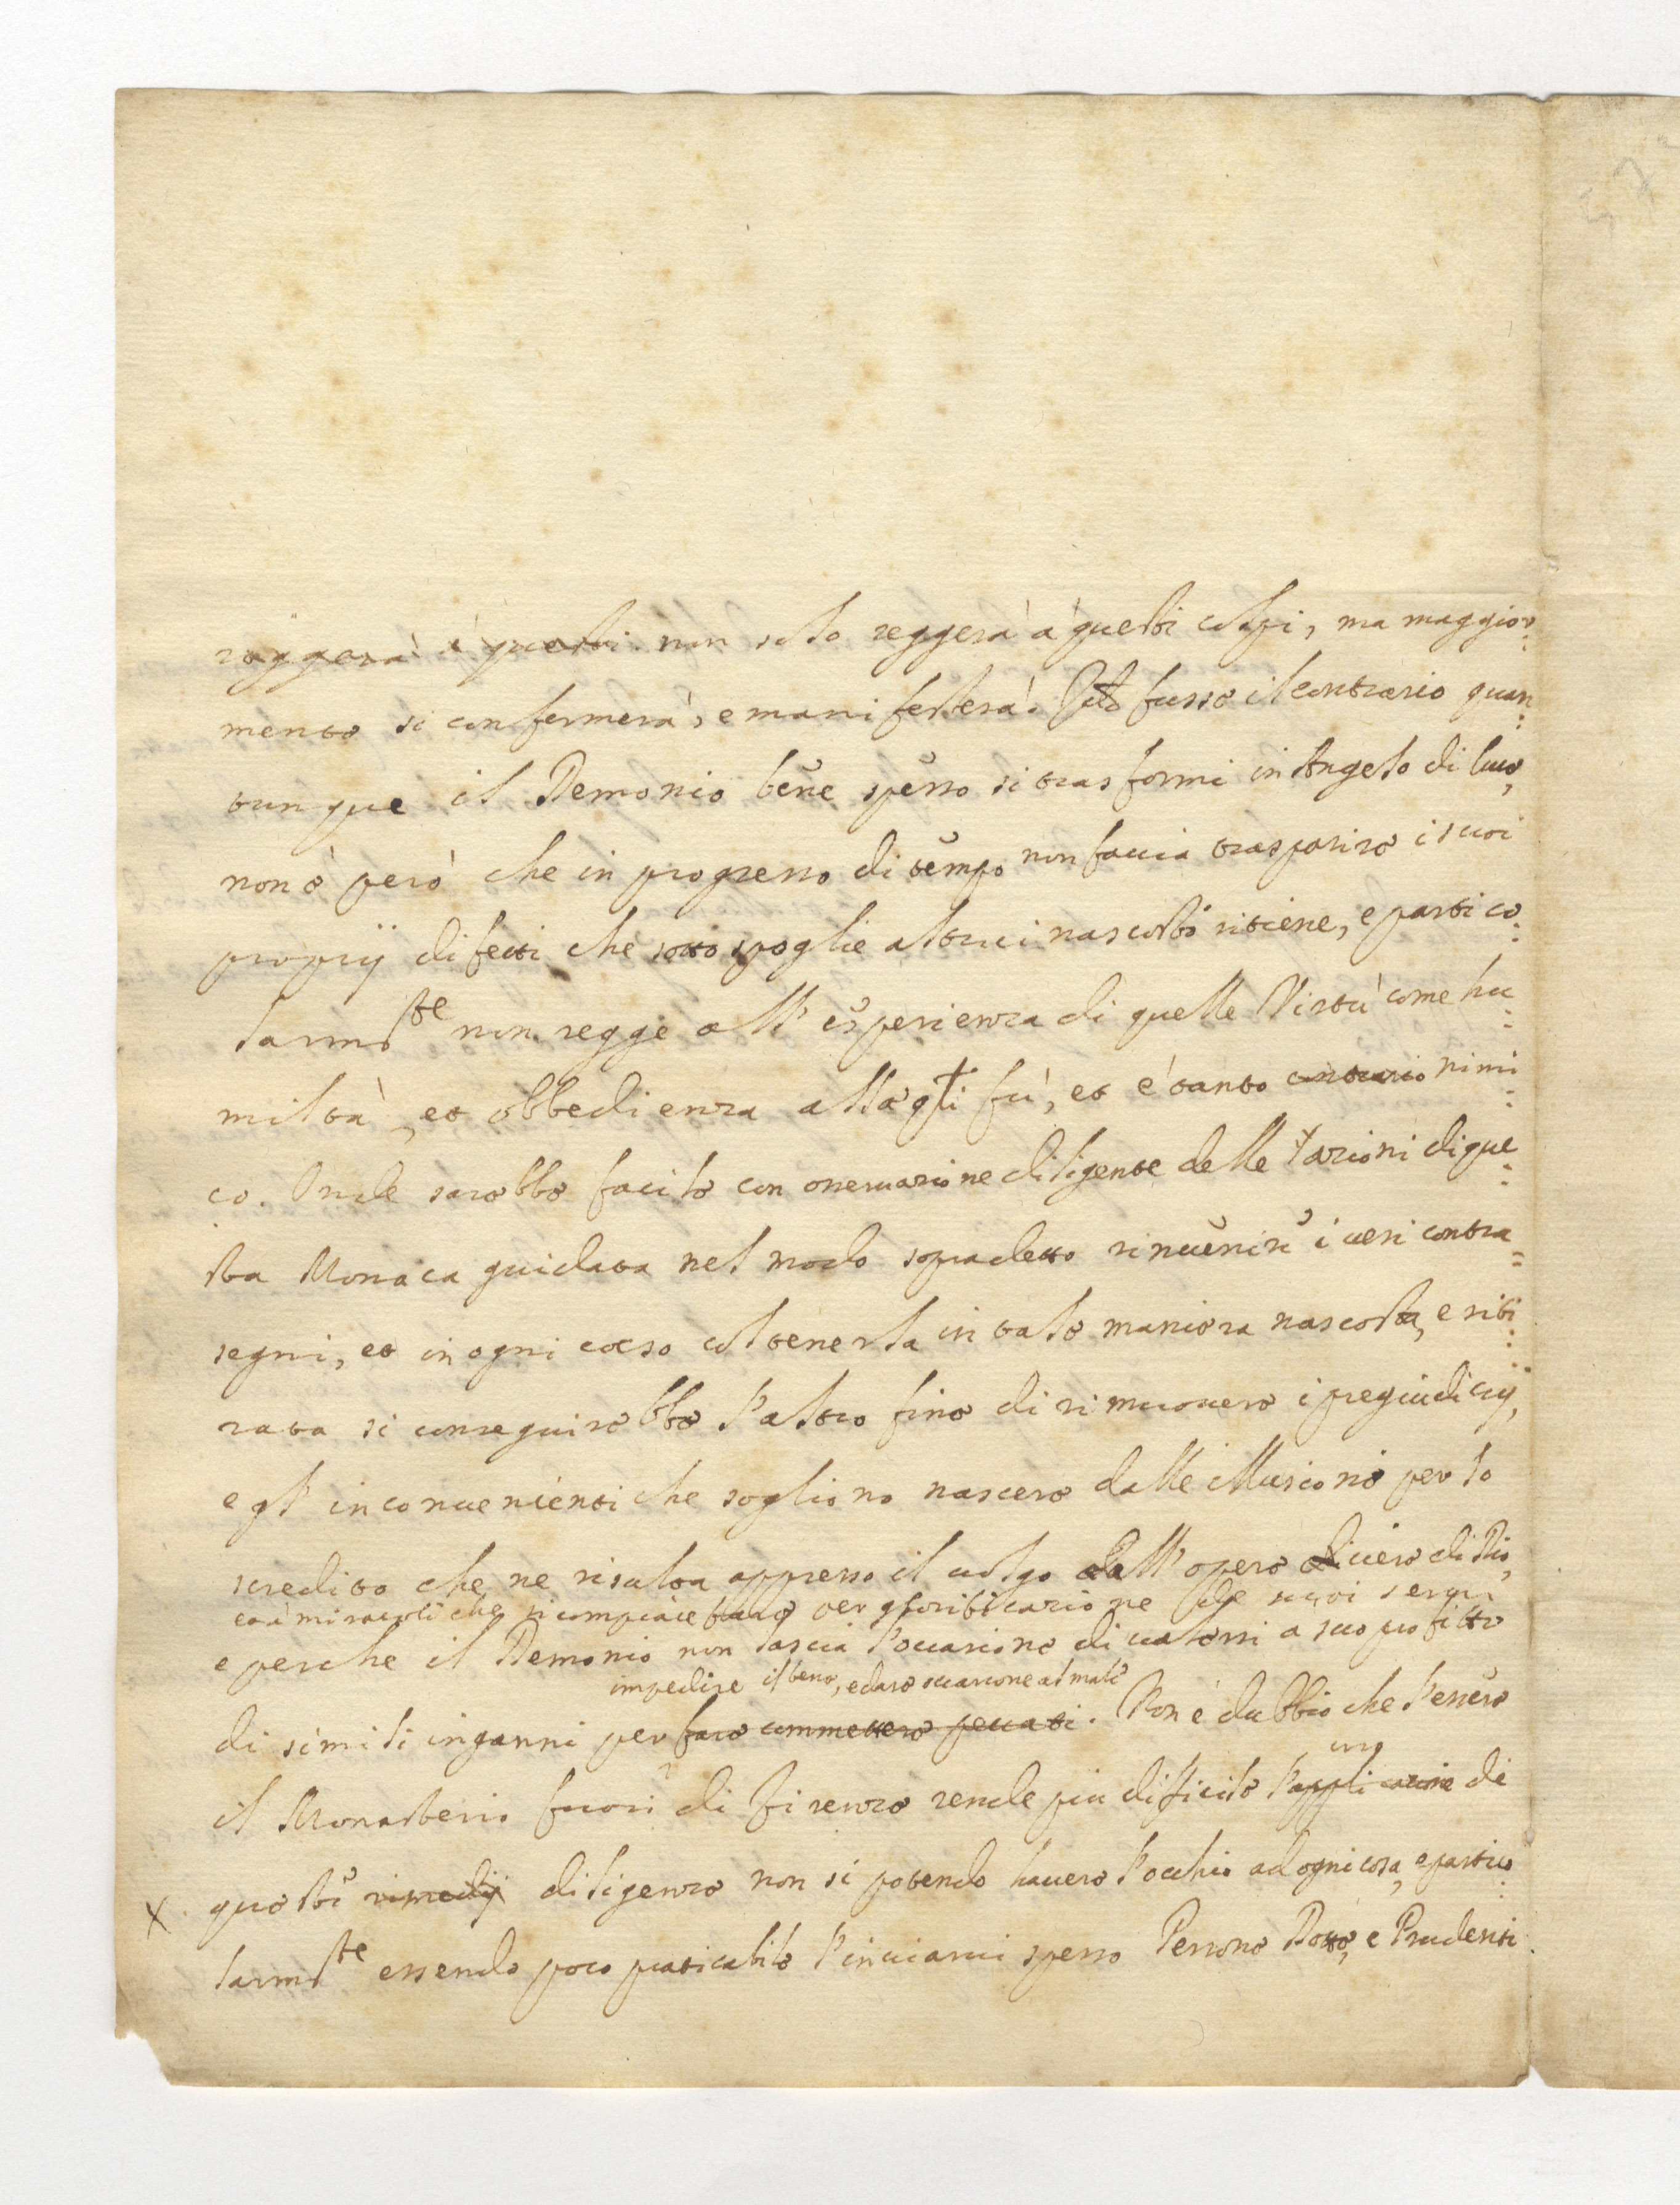 reggerà à questi non solo reggerà à questi colpi, ma maggior:
mente si confermerà, e manifesterà. fusse il contrario quan:
tunque il Demonio bene spesso si trasformi in Angelo di luce,
non è però che in progresso di tempo non faccia trasparire i suoi
proprij difetti che sotto spoglie altrui nascosti ritiene, e partico:
larmte non regge all'esperienza di quelle Virtù come hu:
miltà, et obbedienza alle qli fù, et è tanto contrario nimi:
co. Onde sarebbe facile con osservazione diligente delle azzioni di que:
sta Monaca guidata nel modo sopradetto rinvenire i veri contra=
segni, et in ogni caso col tenerla in tale maniera nascosta, e riti:
rata si conseguirebbe l'altro fine di rimuovere i pregiudicij,
e gl'inconvenienti che sogliono nascere dalle illusioni per lo
scredito che ne risulta appresso il volgo dall'opere vere di Dio,
e a i miracoli che si compiace fare per glorificazione de suoi servi
e perche il Demonio non lascia l'occasione di valersi a suo profitto
impedire il bene, e dare occasione al male
di simili inganni per fare commettere peccati. Non è dubbio che l'essere
il Monasterio fuori di Firenze rende più difficile l'applicazione di
queste rimedij diligenze non si potendo havere l'occhio ad ogni cosa, e partico:
X
larmte essendo poco praticabile l'inviarvi spesso Persone Dotte, e Prudenti